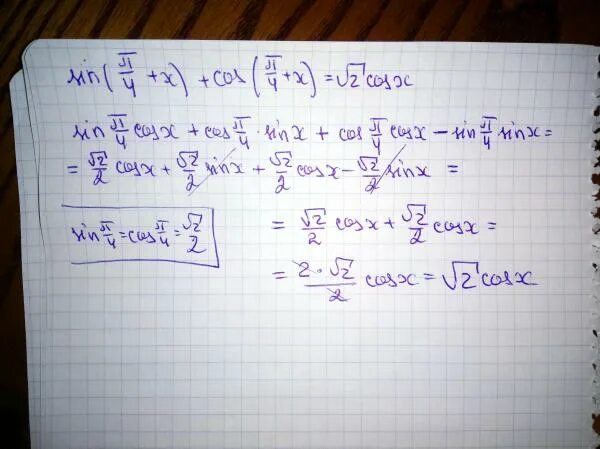 sin(π/4 + x) + cos(π/4 + x) = √2 cosx
sin π/4 cosx + cos π/4 · sinx + cos π/4 cosx − sin π/4 sinx =
= √2/2 cosx + √2/2 sinx + √2/2 cosx − √2/2 sinx =
sin π/4 = cos π/4 = √2/2
= √2/2 cosx + √2/2 cosx =
= 2·√2/2 cosx = √2 cosx